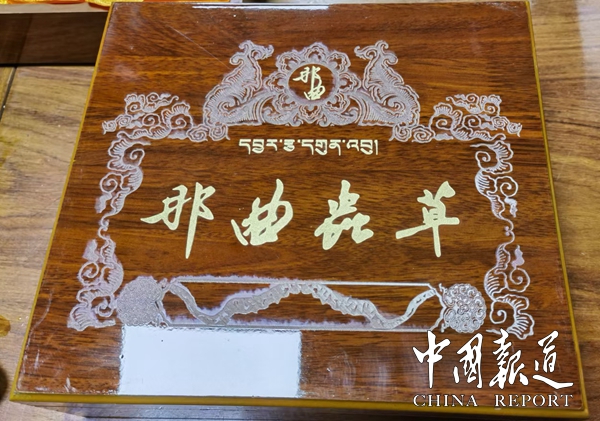 那曲
དབྱར་རྩྭ་དགུན་འབུ།
那曲虫草
中国报道
CHINA REPORT